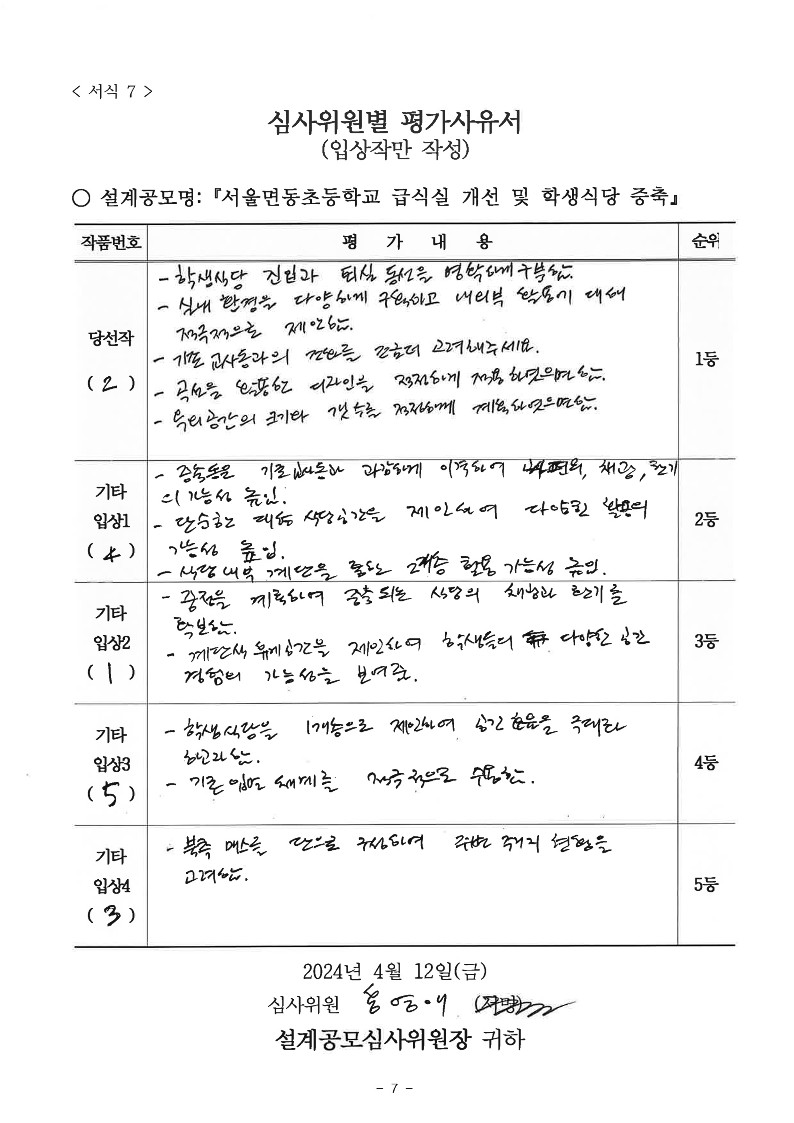 < 서식 7 >
심사위원별 평가사유서
(입상작만 작성)
○ 설계공모명: 『서울면동초등학교 급식실 개선 및 학생식당 증축』
작품번호 평 가 내 용 순위
당선작
( 2 )
- 학생식당 진입과 퇴실 동선을 명확하게 구분함.
- 실내 환경을 다양하게 구획하고 내외부 활용기 대해
적극적으로 제안함.
- 기존 교사동과의 조화를 조금더 고려해주세요.
- 곡선을 활용한 디자인을 적정하게 적용하였으면함.
- 옥외공간의 크기와 갯수를 적정하게 계획하였으면함.
1등
기타
입상1
( 4 )
- 증축동을 기존교사동과 과감하게 이격하여 채광, 환기
의 가능성 높임.
- 단순한 대공 식당공간을 제안하여 다양한 활용의
가능성 높임.
- 식당 내부 계단을 활용 가능성 높임.
2등
기타
입상2
( 1 )
- 중정을 계획하여 증축되는 식당의 채광과 환기를
확보함.
- 계단식 휴게공간을 제안하여 학생들의 다양한 공간
경험의 가능성을 보여줌.
3등
기타
입상3
( 5 )
- 학생식당을 1개층으로 제안하여 공간 효율을 극대화
하고자함.
- 기존 입면 체계를 적극적으로 수용함.
4등
기타
입상4
( 3 )
- 북측 매스를 단으로 구성하여 주변 주거지 현황을
고려함.
5등
2024년 4월 12일(금)
심사위원 홍경애 (서명)
설계공모심사위원장 귀하
- 7 -